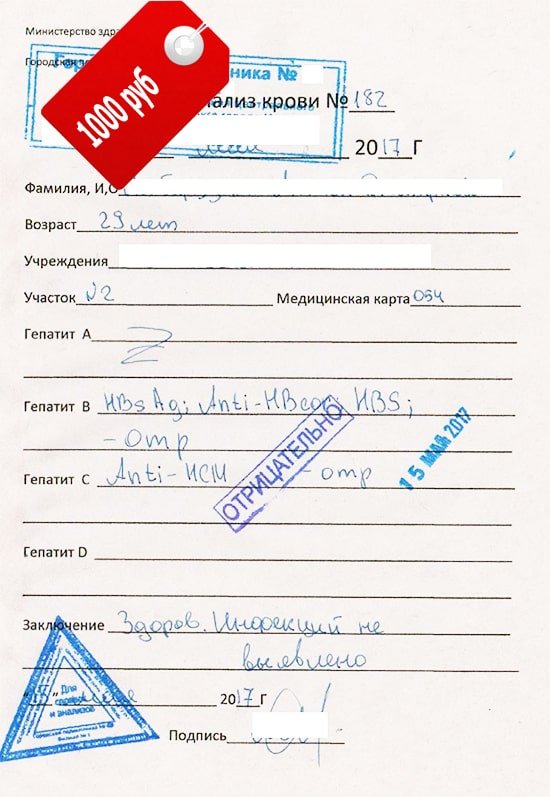 Министерство здра
Городская по
1000 руб
Гор
ника №
ализ крови № 182
мая 2017 Г
Фамилия, И,О
Возраст 29 лет
Учреждения
Участок №2 Медицинская карта 054
Гепатит А
Z
Гепатит В HBsAg; Anti-HBcor; HBS;
- отр
ОТРИЦАТЕЛЬНО
15 МАЯ 2017
Гепатит С Anti-HCM - отр
Гепатит D
Заключение Здоров. Инфекций не
выявлено
Для
справок
и анализов
"15" мая 2017 Г
Подпись